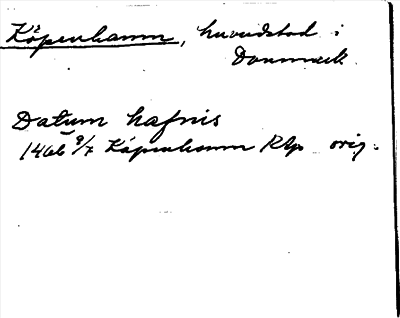 Köpenhamn, huvudstad i
Danmark.
Datum hafnis
1466 9/7 Köpenhamn RAp orig.